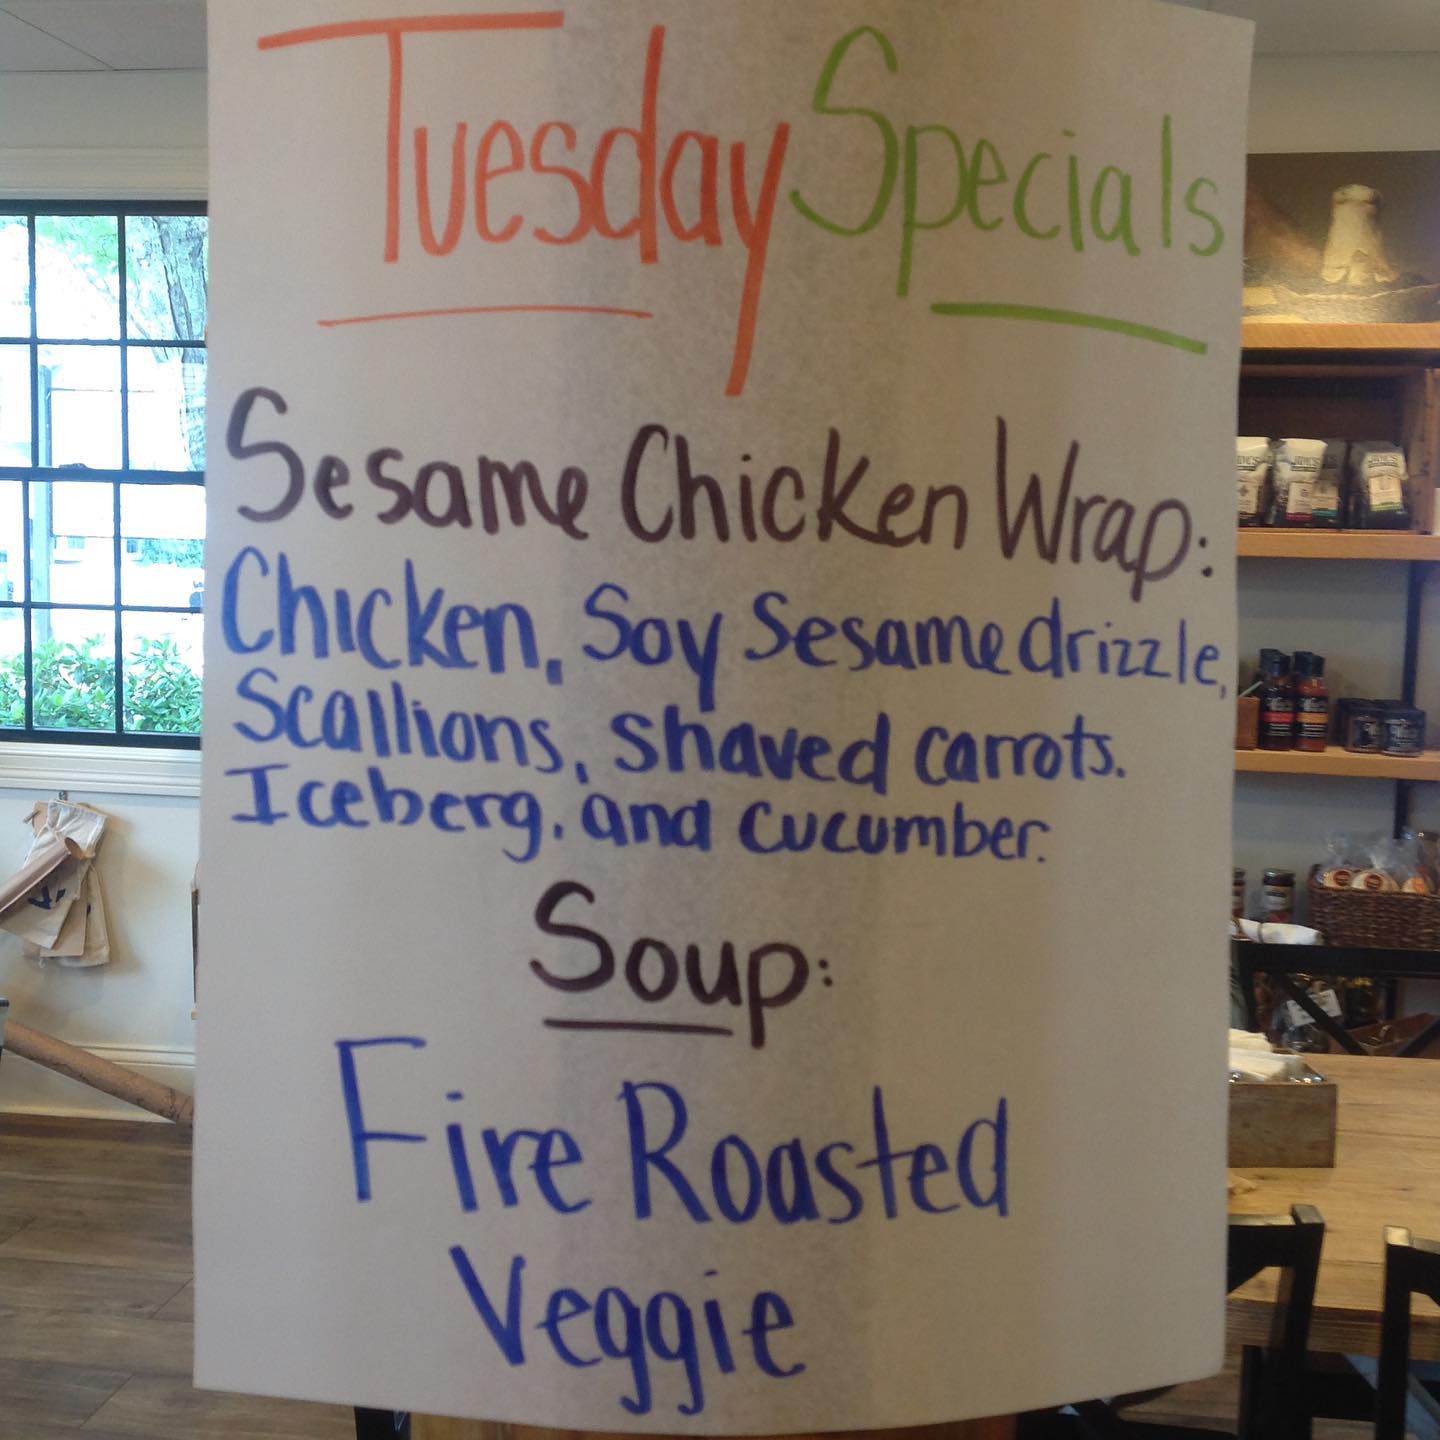 Tuesday Specials
Sesame Chicken Wrap:
Chicken, Soy Sesame drizzle,
Scallions, shaved carrots.
Iceberg, and cucumber.
Soup:
Fire Roasted
Veggie